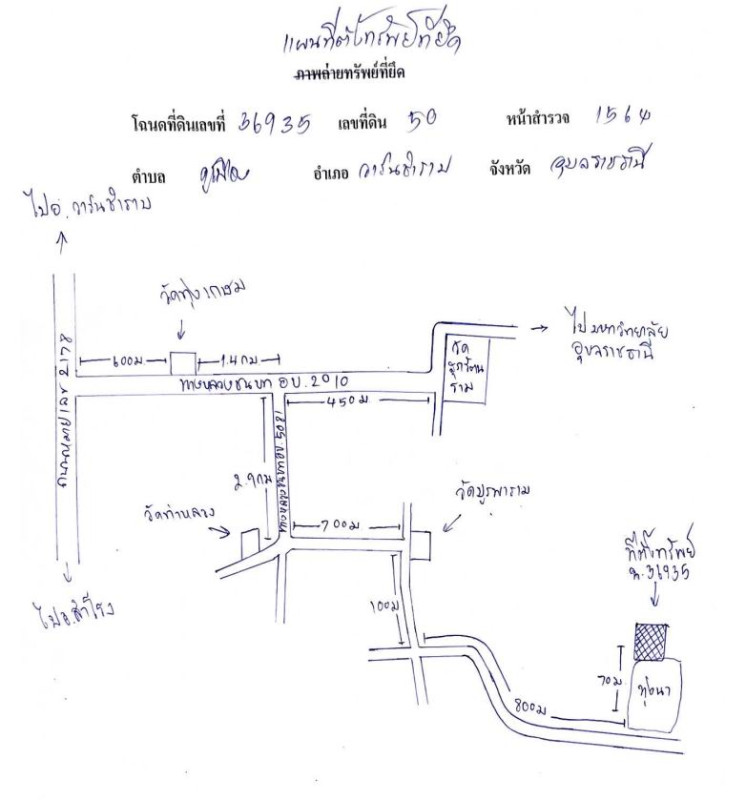 แผนที่ตั้งทรัพย์ที่ยึด
ภาพถ่ายทรัพย์ที่ยึด
โฉนดที่ดินเลขที่ 36935 เลขที่ดิน 50 หน้าสำรวจ 1564
ตำบล คูเมือง อำเภอ วารินชำราบ จังหวัด อุบลราชธานี
ไปอ.วารินชำราบ
วัดทุ่งเกษม
ไปมหาวิทยาลัย
อุบลราชธานี
600ม.
1.4กม
วัด
ราม
ทางหลวงชนบท อบ.2010
450ม
ถนนหมายเลข 2178
2.9กม
วัดท่าหลวง
700ม
วัดบูรพาราม
ที่ตั้งทรัพย์
ฉ.36935
ไปอ.สำโรง
100ม
70ม
ทุ่งนา
800ม